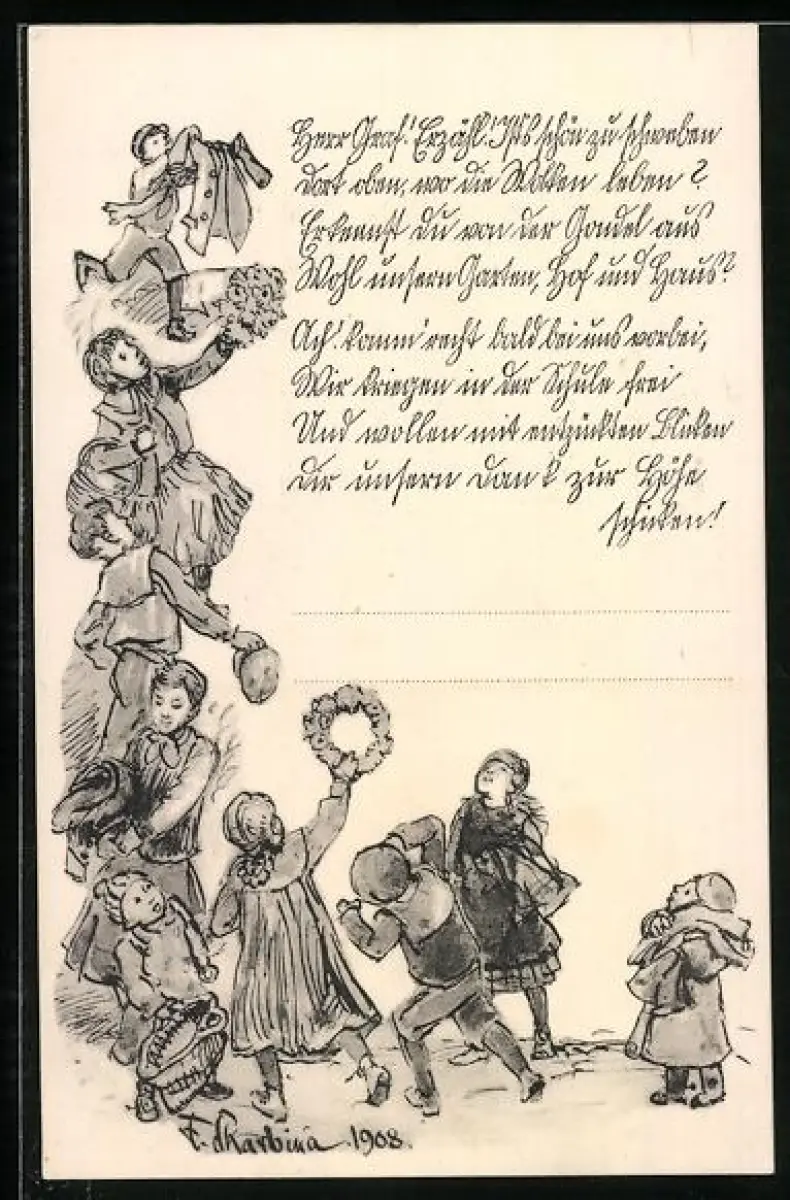 Herr Graf! Erzähl! Ists schön zu schweben
Dort oben, wo die Wolken leben?
Erkennst Du von der Gondel aus
Wohl unsern Garten, Hof und Haus?
Ach! komm' recht bald bei uns vorbei,
Wir kriegen in der Schule frei
Und wollen mit entzückten Blicken
Dir unsern Dank zur Höhe
schicken!
F. Skarbina 1908.